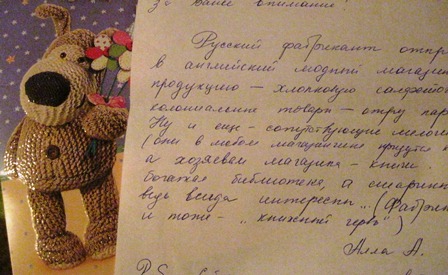 за Ваше внимание!
Русский фабрикант отпр
в английский модный магазин
продукцию — хлопковую
колониальные товары —
Ну и еще — сопутствующие мелочи
(они в любом магазинчике
а хозяевам магазина — книги.
богатая библиотека, а старинн
ведь всегда интересны... (Фабрик
и тоже — „книжный герой")
Алла А.
P.S.